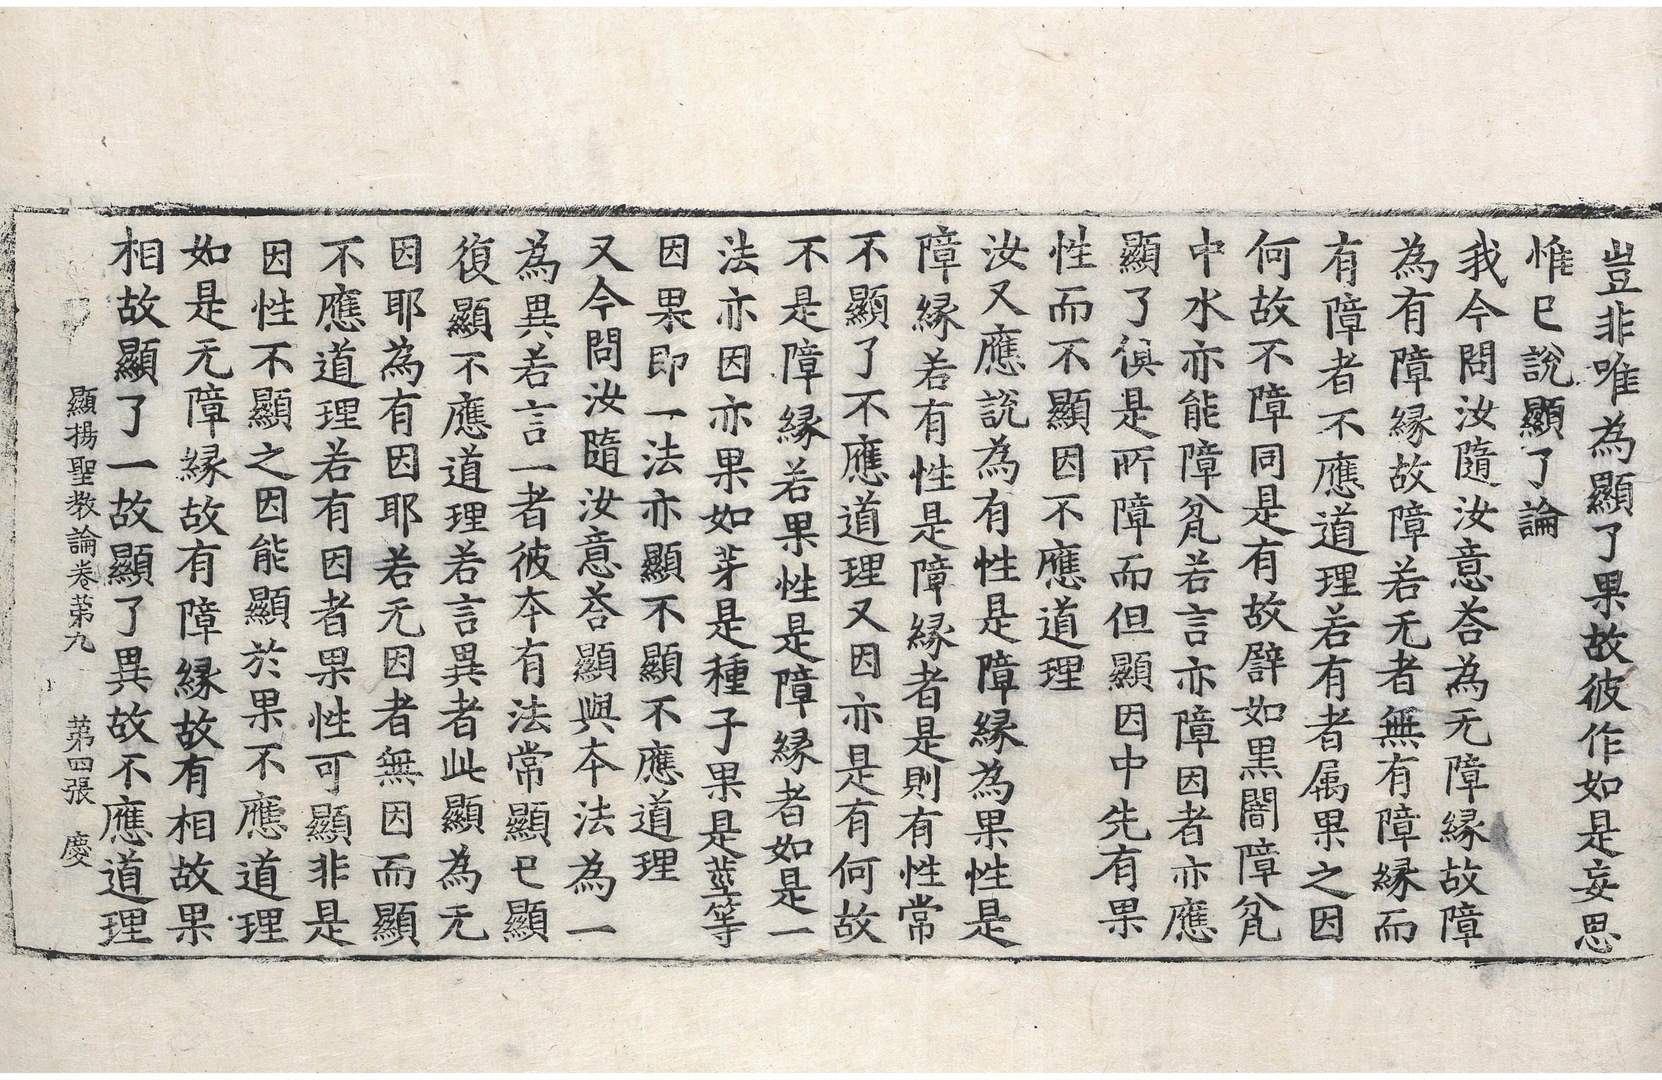 豈非唯為顯了果故彼作如是妄思
惟已說顯了論
我今問汝隨汝意荅為无障縁故障
為有障縁故障若无者無有障縁而
有障者不應道理若有者属果之因
何故不障同是有故譬如黒闇障瓫
中水亦能障瓫若言亦障因者亦應
顯了俱是所障而但顯因中先有果
性而不顯因不應道理
汝又應説為有性是障縁為果性是
障縁若有性是障縁者是則有性常
不顯了不應道理又因亦是有何故
不是障縁若果性是障縁者如是一
法亦因亦果如芽是種子果是莖等
因果即一法亦顯不顯不應道理
又今問汝隨汝意荅顯與夲法為一
為異若言一者彼夲有法常顯已顯
復顯不應道理若言異者此顯為无
因耶為有因耶若无因者無因而顯
不應道理若有因者果性可顯非是
因性不顯之因能顯於果不應道理
如是无障縁故有障縁故有相故果
相故顯了一故顯了異故不應道理
顯揚聖教論卷苐九 苐四張 慶